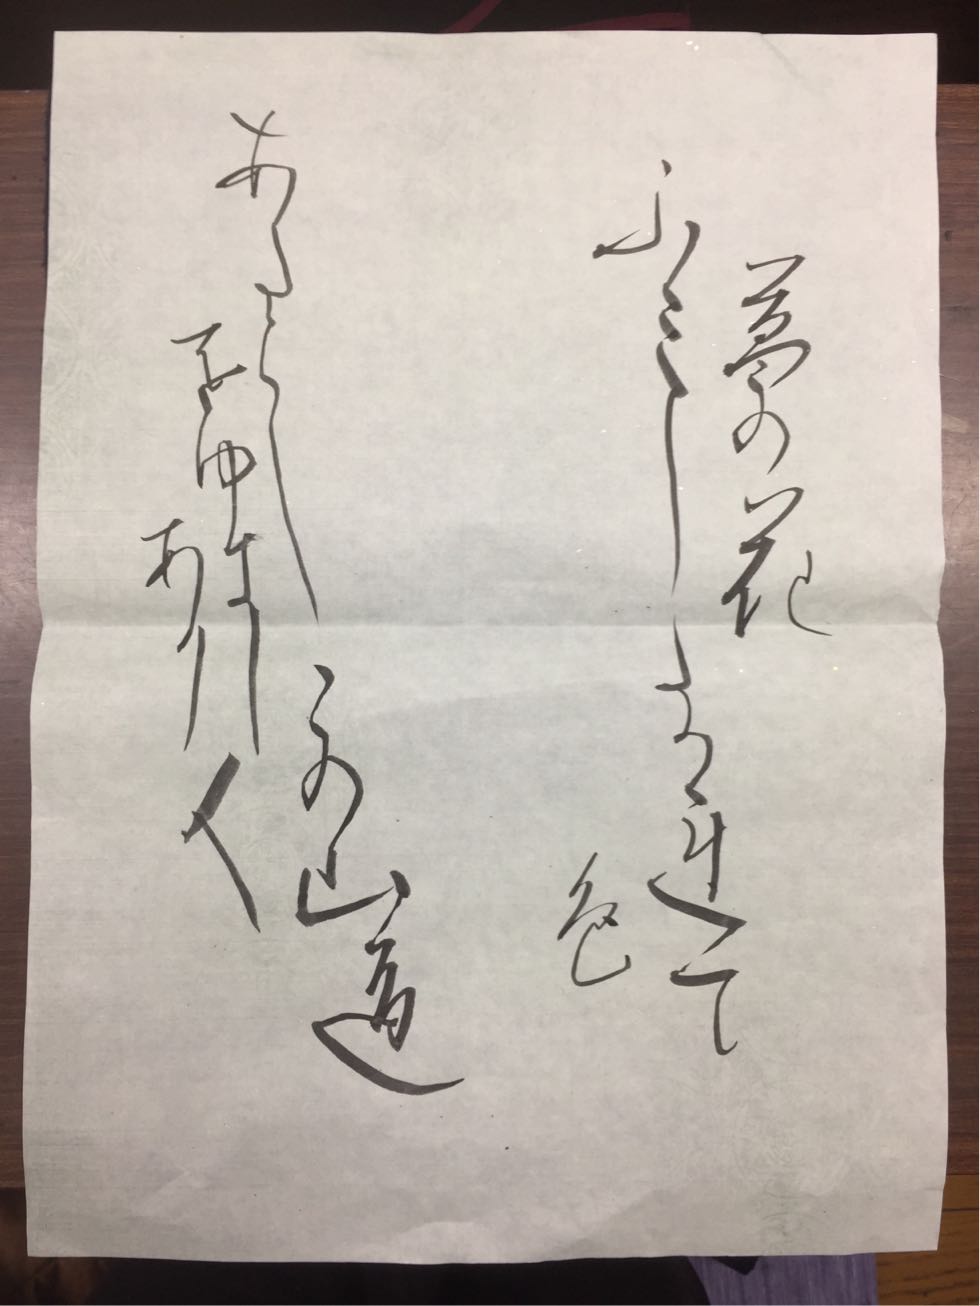 葛の花
ふみしたかれて
色
あたらし
この山道
をゆきし人
あり